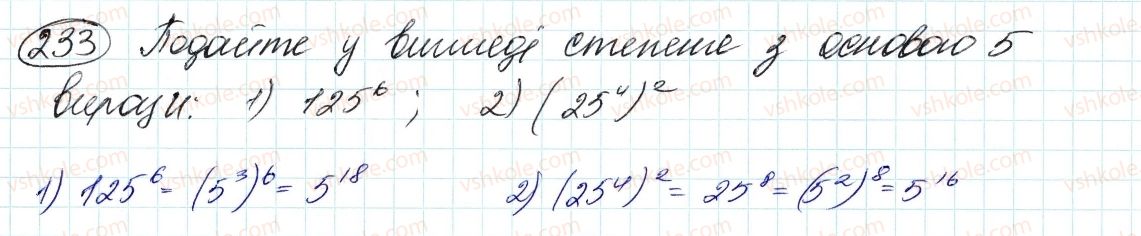 233 Подайте у вигляді степеня з основою 5
вирази: 1) 125⁶ ; 2) (25⁴)²
1) 125⁶ = (5³)⁶ = 5¹⁸ 2) (25⁴)² = 25⁸ = (5²)⁸ = 5¹⁶
vshkole.com